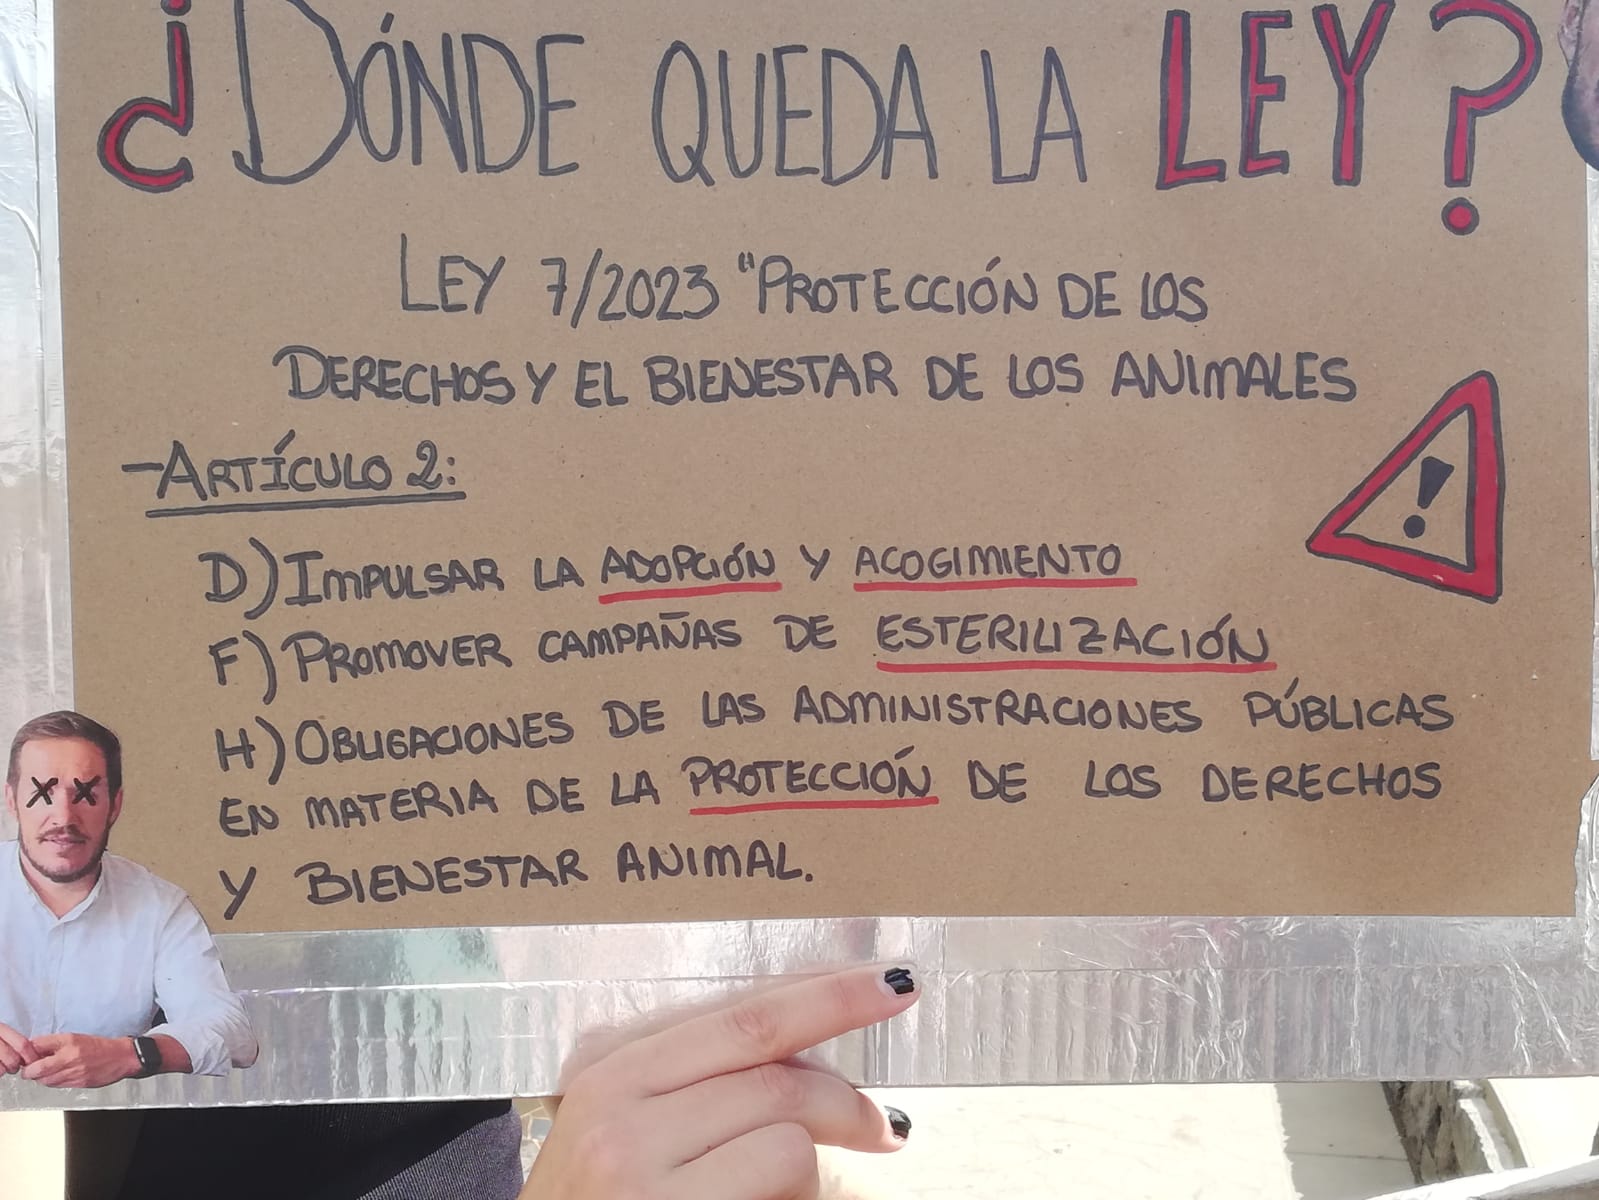 ¿DÓNDE QUEDA LA LEY?
LEY 7/2023 "PROTECCIÓN DE LOS
DERECHOS Y EL BIENESTAR DE LOS ANIMALES
-ARTÍCULO 2:
D) IMPULSAR LA ADOPCIÓN Y ACOGIMIENTO
F) PROMOVER CAMPAÑAS DE ESTERILIZACIÓN
H) OBLIGACIONES DE LAS ADMINISTRACIONES PÚBLICAS
EN MATERIA DE LA PROTECCIÓN DE LOS DERECHOS
Y BIENESTAR ANIMAL.
!